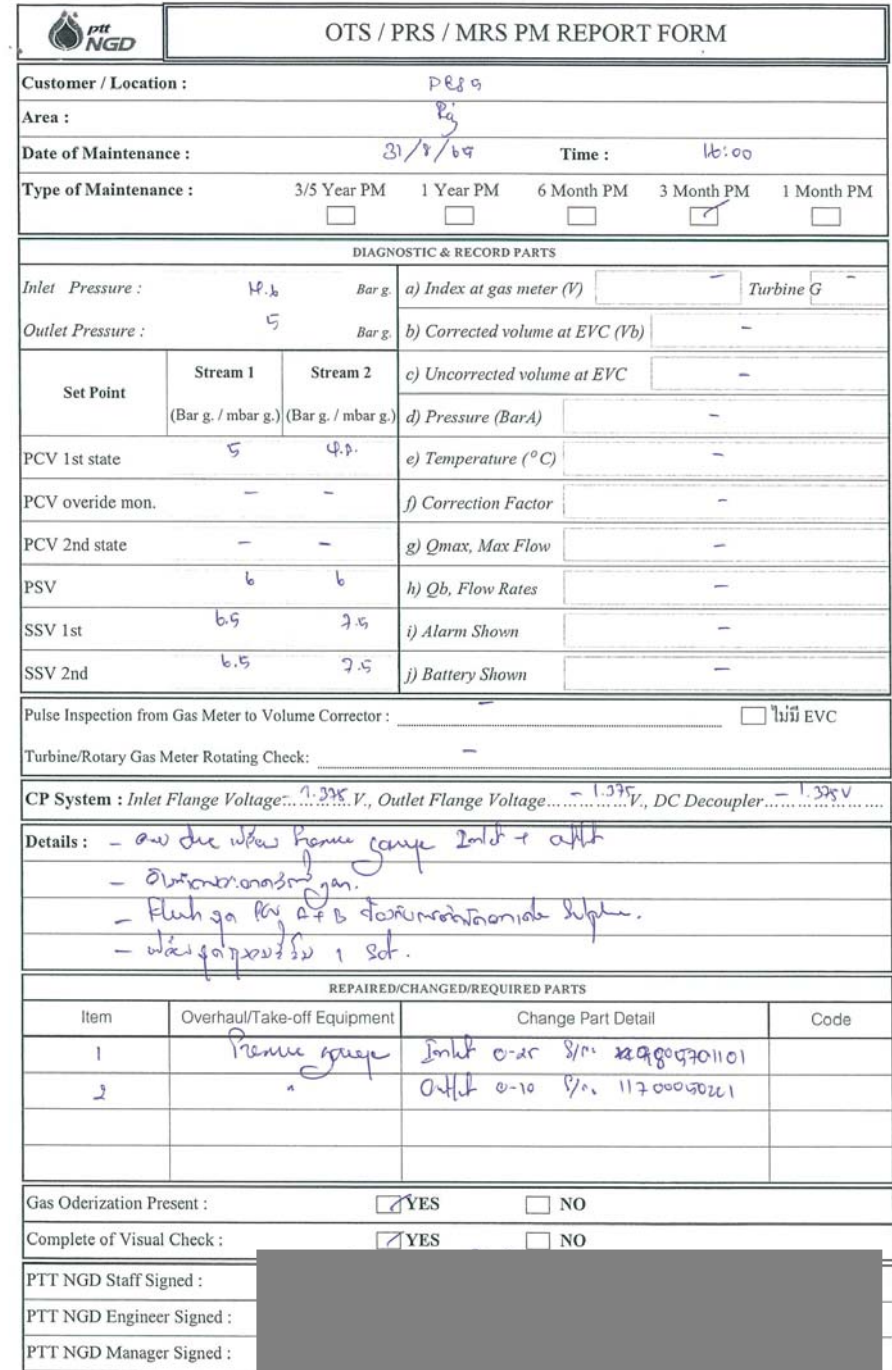 ptt NGD
OTS / PRS / MRS PM REPORT FORM
Customer / Location :
Area :
Date of Maintenance : 31/8/ Time : 16:00
Type of Maintenance : 3/5 Year PM 1 Year PM 6 Month PM 3 Month PM 1 Month PM
DIAGNOSTIC & RECORD PARTS
Inlet Pressure : Bar g.
Outlet Pressure : 5 Bar g.
Set Point Stream 1 Stream 2
(Bar g. / mbar g.) (Bar g. / mbar g.)
PCV 1st state 5
PCV overide mon. - -
PCV 2nd state - -
PSV 6 6
SSV 1st 6.5 7.5
SSV 2nd 6.5 7.5
a) Index at gas meter (V) - Turbine G -
b) Corrected volume at EVC (Vb) -
c) Uncorrected volume at EVC -
d) Pressure (BarA) -
e) Temperature (°C) -
f) Correction Factor -
g) Qmax, Max Flow -
h) Qb, Flow Rates -
i) Alarm Shown -
j) Battery Shown -
Pulse Inspection from Gas Meter to Volume Corrector : - ไม่มี EVC
Turbine/Rotary Gas Meter Rotating Check: -
CP System : Inlet Flange Voltage 1.375 V., Outlet Flange Voltage - 1.375 V., DC Decoupler - 1.375 V
Details : - Pressure gauge Inlet +
-
- Flush A + B
- 1 Set.
REPAIRED/CHANGED/REQUIRED PARTS
Item Overhaul/Take-off Equipment Change Part Detail Code
1 Pressure gauge Inlet 0-25 S/N.
2 " Outlet 0-10 S/N.
Gas Oderization Present : YES NO
Complete of Visual Check : YES NO
PTT NGD Staff Signed :
PTT NGD Engineer Signed :
PTT NGD Manager Signed :